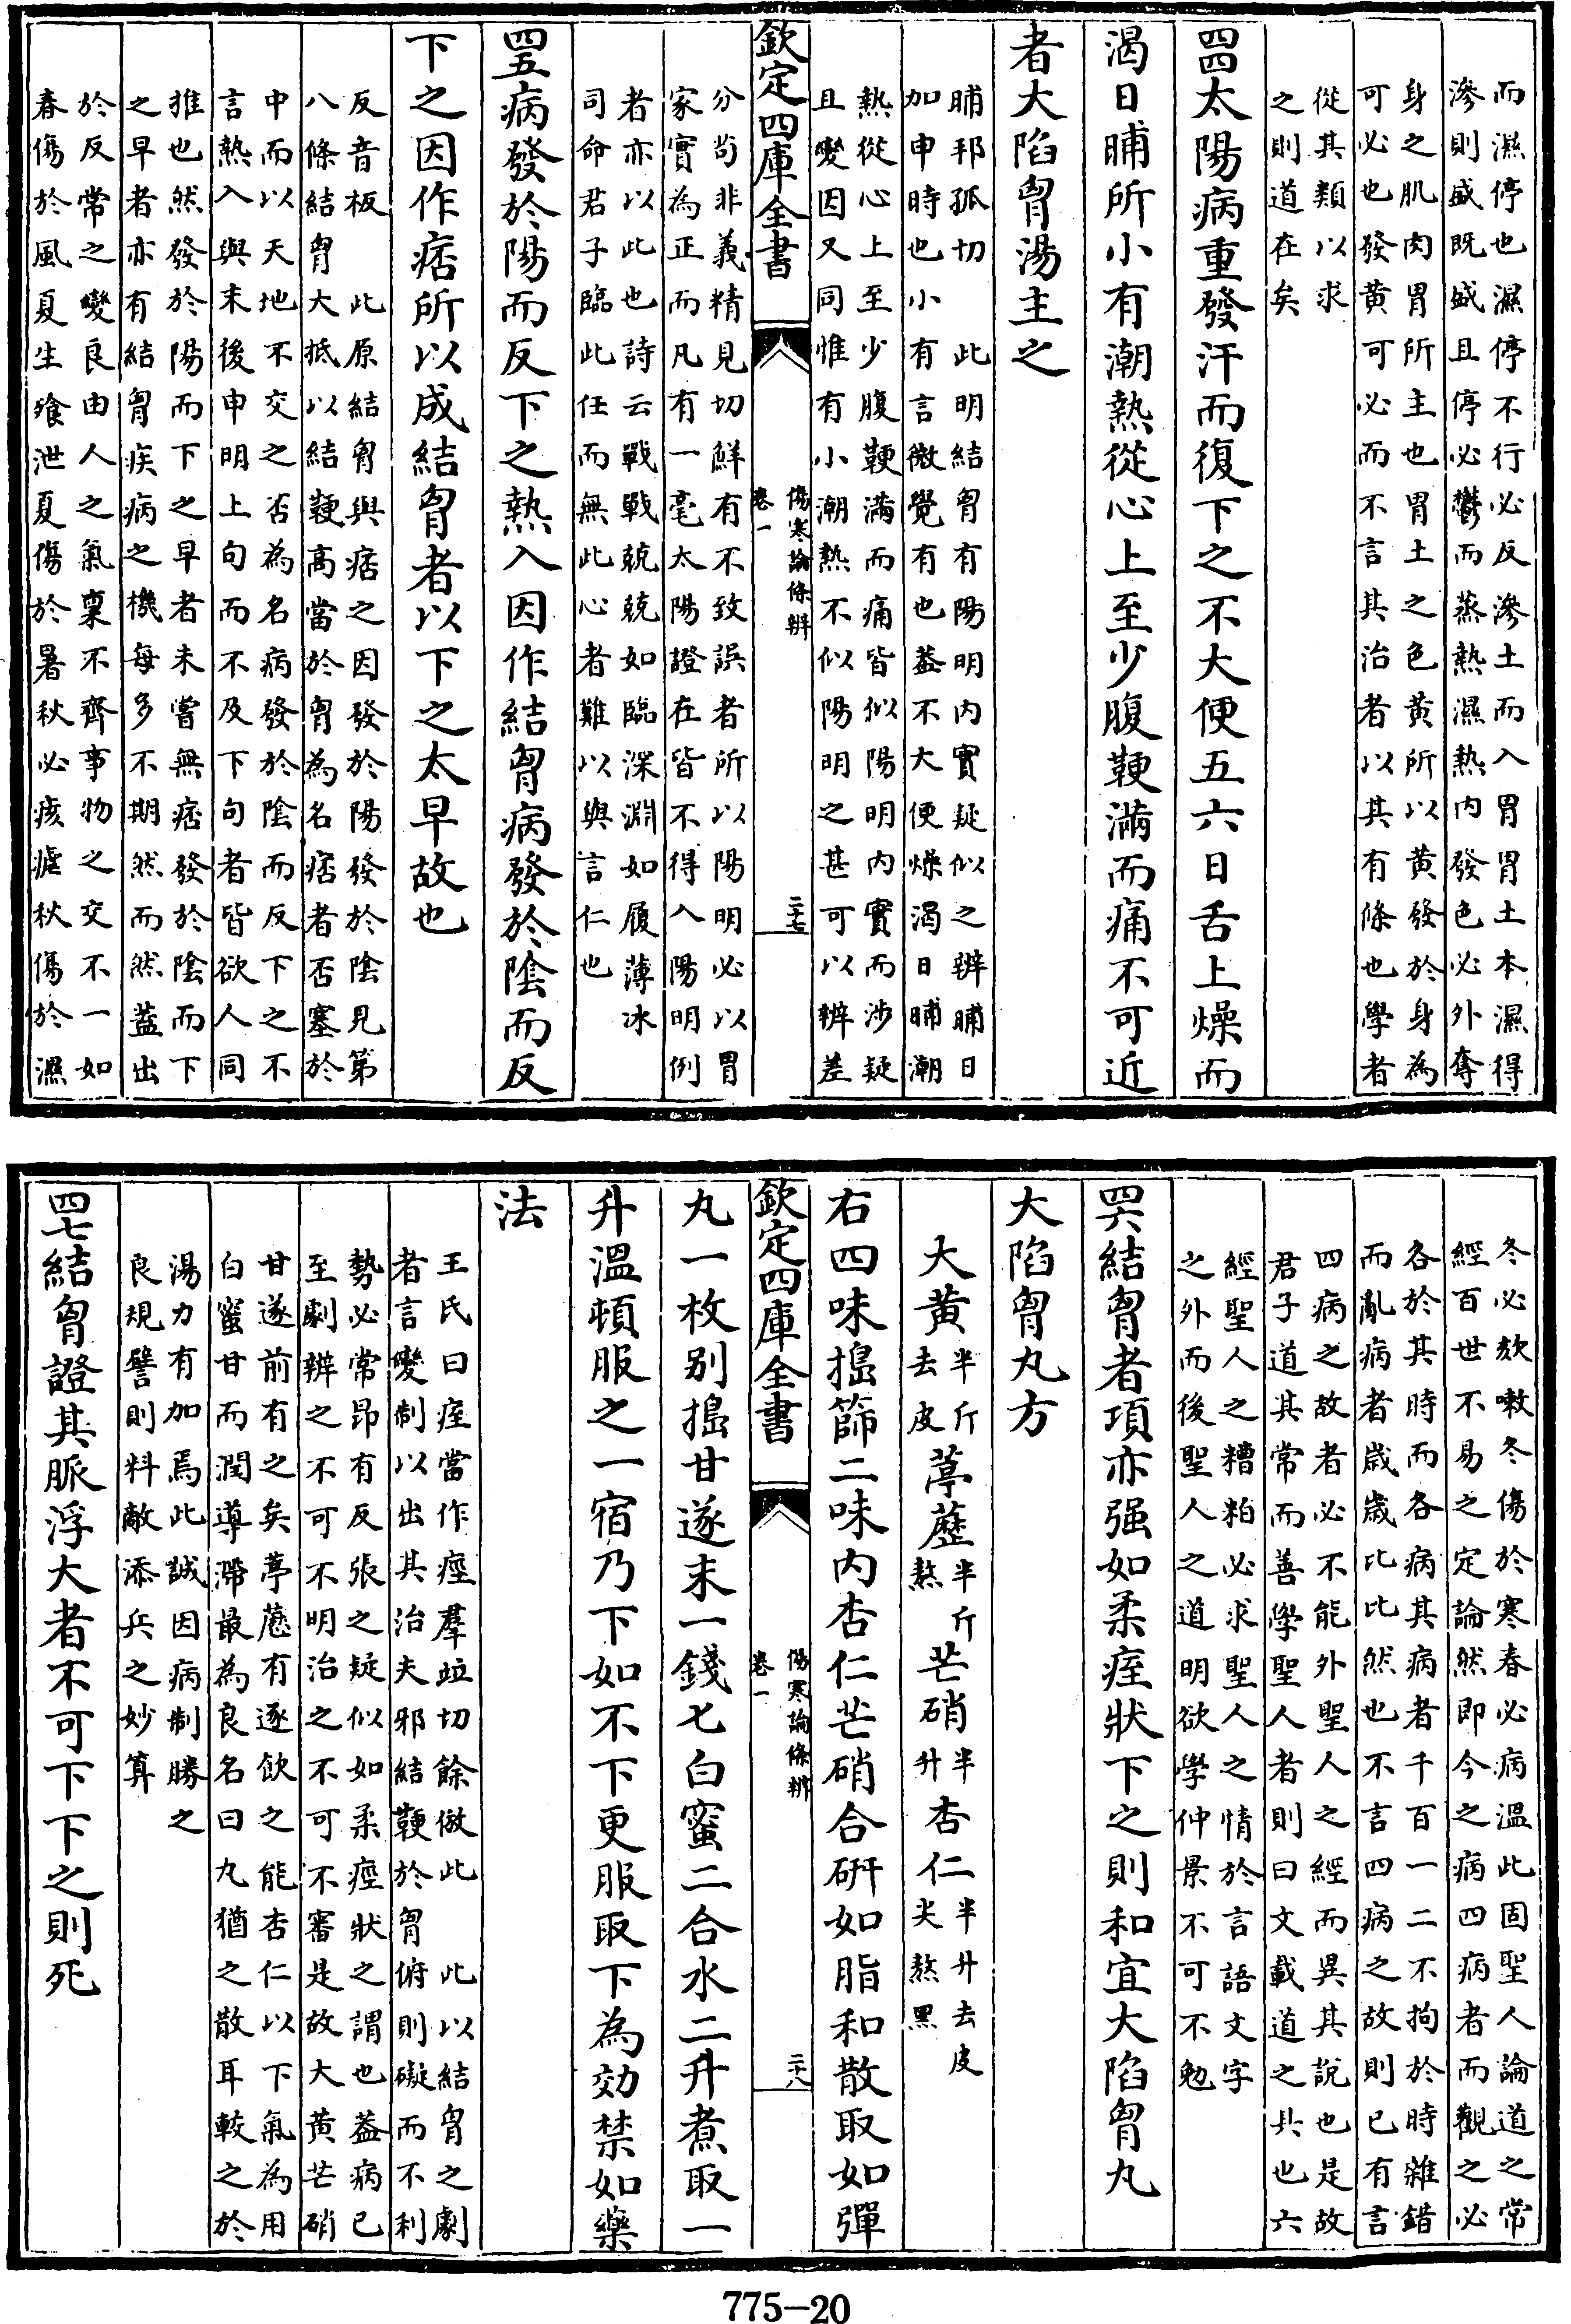 而濕停也濕停不行必反滲土而入胃胃土本濕得
滲則盛既盛且停必鬱而蒸熱濕熱内發色必外奪
身之肌肉胃所主也胃土之色黄所以黄發於身為
可必也發黄可必而不言其治者以其有條也學者
從其類以求
之則道在矣
四四太陽病重發汗而復下之不大便五六日舌上燥而
渴日晡所小有潮熱從心上至少腹鞕滿而痛不可近
者大陷胷湯主之
晡邦孤切　此明結胷有陽明内實疑似之辨晡日
加申時也小有言微覺有也葢不大便燥渴日晡潮
熱從心上至少腹鞕滿而痛皆似陽明内實而涉疑
且變因又同惟有小潮熱不似陽明之甚可以辨差
欽定四庫全書
傷寒論條辨
卷一
二十七
分苟非義精見切鮮有不致誤者所以陽明必以胃
家實為正而凡有一毫太陽證在皆不得入陽明例
者亦以此也詩云戰戰兢兢如臨深淵如履薄冰
司命君子臨此任而無此心者難以與言仁也
四五病發於陽而反下之熱入因作結胷病發於陰而反
下之因作痞所以成結胷者以下之太早故也
反音板　此原結胷與痞之因發於陽發於陰見第
八條結胷大抵以結鞕高當於胷為名痞者否塞於
中而以天地不交之否為名病發於陰而反下之不
言熱入與末後申明上句而不及下句者皆欲人同
推也然發於陽而下之早者未嘗無痞發於陰而下
之早者亦有結胷疾病之機每多不期然而然葢出
於反常之變良由人之氣稟不齊事物之交不一如
春傷於風夏生飱泄夏傷於暑秋必痎瘧秋傷於濕
冬必欬嗽冬傷於寒春必病溫此固聖人論道之常
經百世不易之定論然即今之病四病者而觀之必
各於其時而各病其病者千百一二不拘於時雜錯
而亂病者歲歲比比然也不言四病之故則已有言
四病之故者必不能外聖人之經而異其説也是故
君子道其常而善學聖人者則曰文載道之具也六
經聖人之糟粕必求聖人之情於言語文字
之外而後聖人之道明欲學仲景不可不勉
四六結胷者項亦强如柔痓狀下之則和宜大陷胷丸
大陷胷丸方
大黄半斤去皮葶藶半斤熬芒硝半升杏仁半升去皮尖熬黑
右四味搗篩二味内杏仁芒硝合研如脂和散取如彈
欽定四庫全書
傷寒論條辨
卷一
二十八
丸一枚别搗甘遂末一錢匕白蜜二合水二升煮取一
升溫頓服之一宿乃下如不下更服取下為効禁如藥
法
王氏曰痓當作痙羣竝切餘倣此　此以結胷之劇
者言變制以出其治夫邪結鞕於胷俯則礙而不利
勢必常昂有反張之疑似如柔痙狀之謂也葢病已
至劇辨之不可不明治之不可不審是故大黄芒硝
甘遂前有之矣葶藶有逐飲之能杏仁以下氣為用
白蜜甘而潤導滯最為良名曰丸猶之散耳較之於
湯力有加焉此誠因病制勝之
良規譬則料敵添兵之妙算
四七結胷證其脈浮大者不可下下之則死
775-20